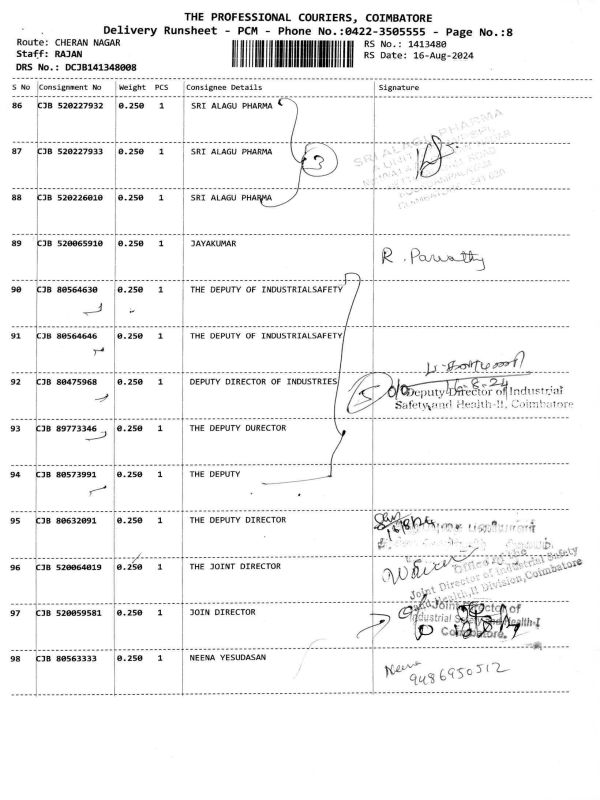 THE PROFESSIONAL COURIERS, COIMBATORE
Delivery Runsheet - PCM - Phone No.:0422-3505555 - Page No.:8
Route: CHERAN NAGAR
RS No.: 1413480
Staff: RAJAN
RS Date: 16-Aug-2024
DRS No.: DCJB141348008
S No Consignment No Weight PCS Consignee Details Signature
86 CJB 520227932 0.250 1 SRI ALAGU PHARMA
SRI ALAGU PHARMA
87 CJB 520227933 0.250 1 SRI ALAGU PHARMA
3
88 CJB 520226010 0.250 1 SRI ALAGU PHARMA
89 CJB 520065910 0.250 1 JAYAKUMAR
R. Parvathy
90 CJB 80564630 0.250 1 THE DEPUTY OF INDUSTRIALSAFETY
91 CJB 80564646 0.250 1 THE DEPUTY OF INDUSTRIALSAFETY
92 CJB 80475968 0.250 1 DEPUTY DIRECTOR OF INDUSTRIES
5
16-8-24
O/o Deputy Director of Industrial
Safety and Health-II, Coimbatore
93 CJB 89773346 0.250 1 THE DEPUTY DURECTOR
94 CJB 80573991 0.250 1 THE DEPUTY
95 CJB 80632091 0.250 1 THE DEPUTY DIRECTOR
16/8/24
96 CJB 520064019 0.250 1 THE JOINT DIRECTOR
Office of the
Joint Director of Industrial Safety
and Health,II Division,Coimbatore
97 CJB 520059581 0.250 1 JOIN DIRECTOR
Joint Director of
Industrial Safety and Health-I
Coimbatore.
98 CJB 80563333 0.250 1 NEENA YESUDASAN
Neena
9486950512